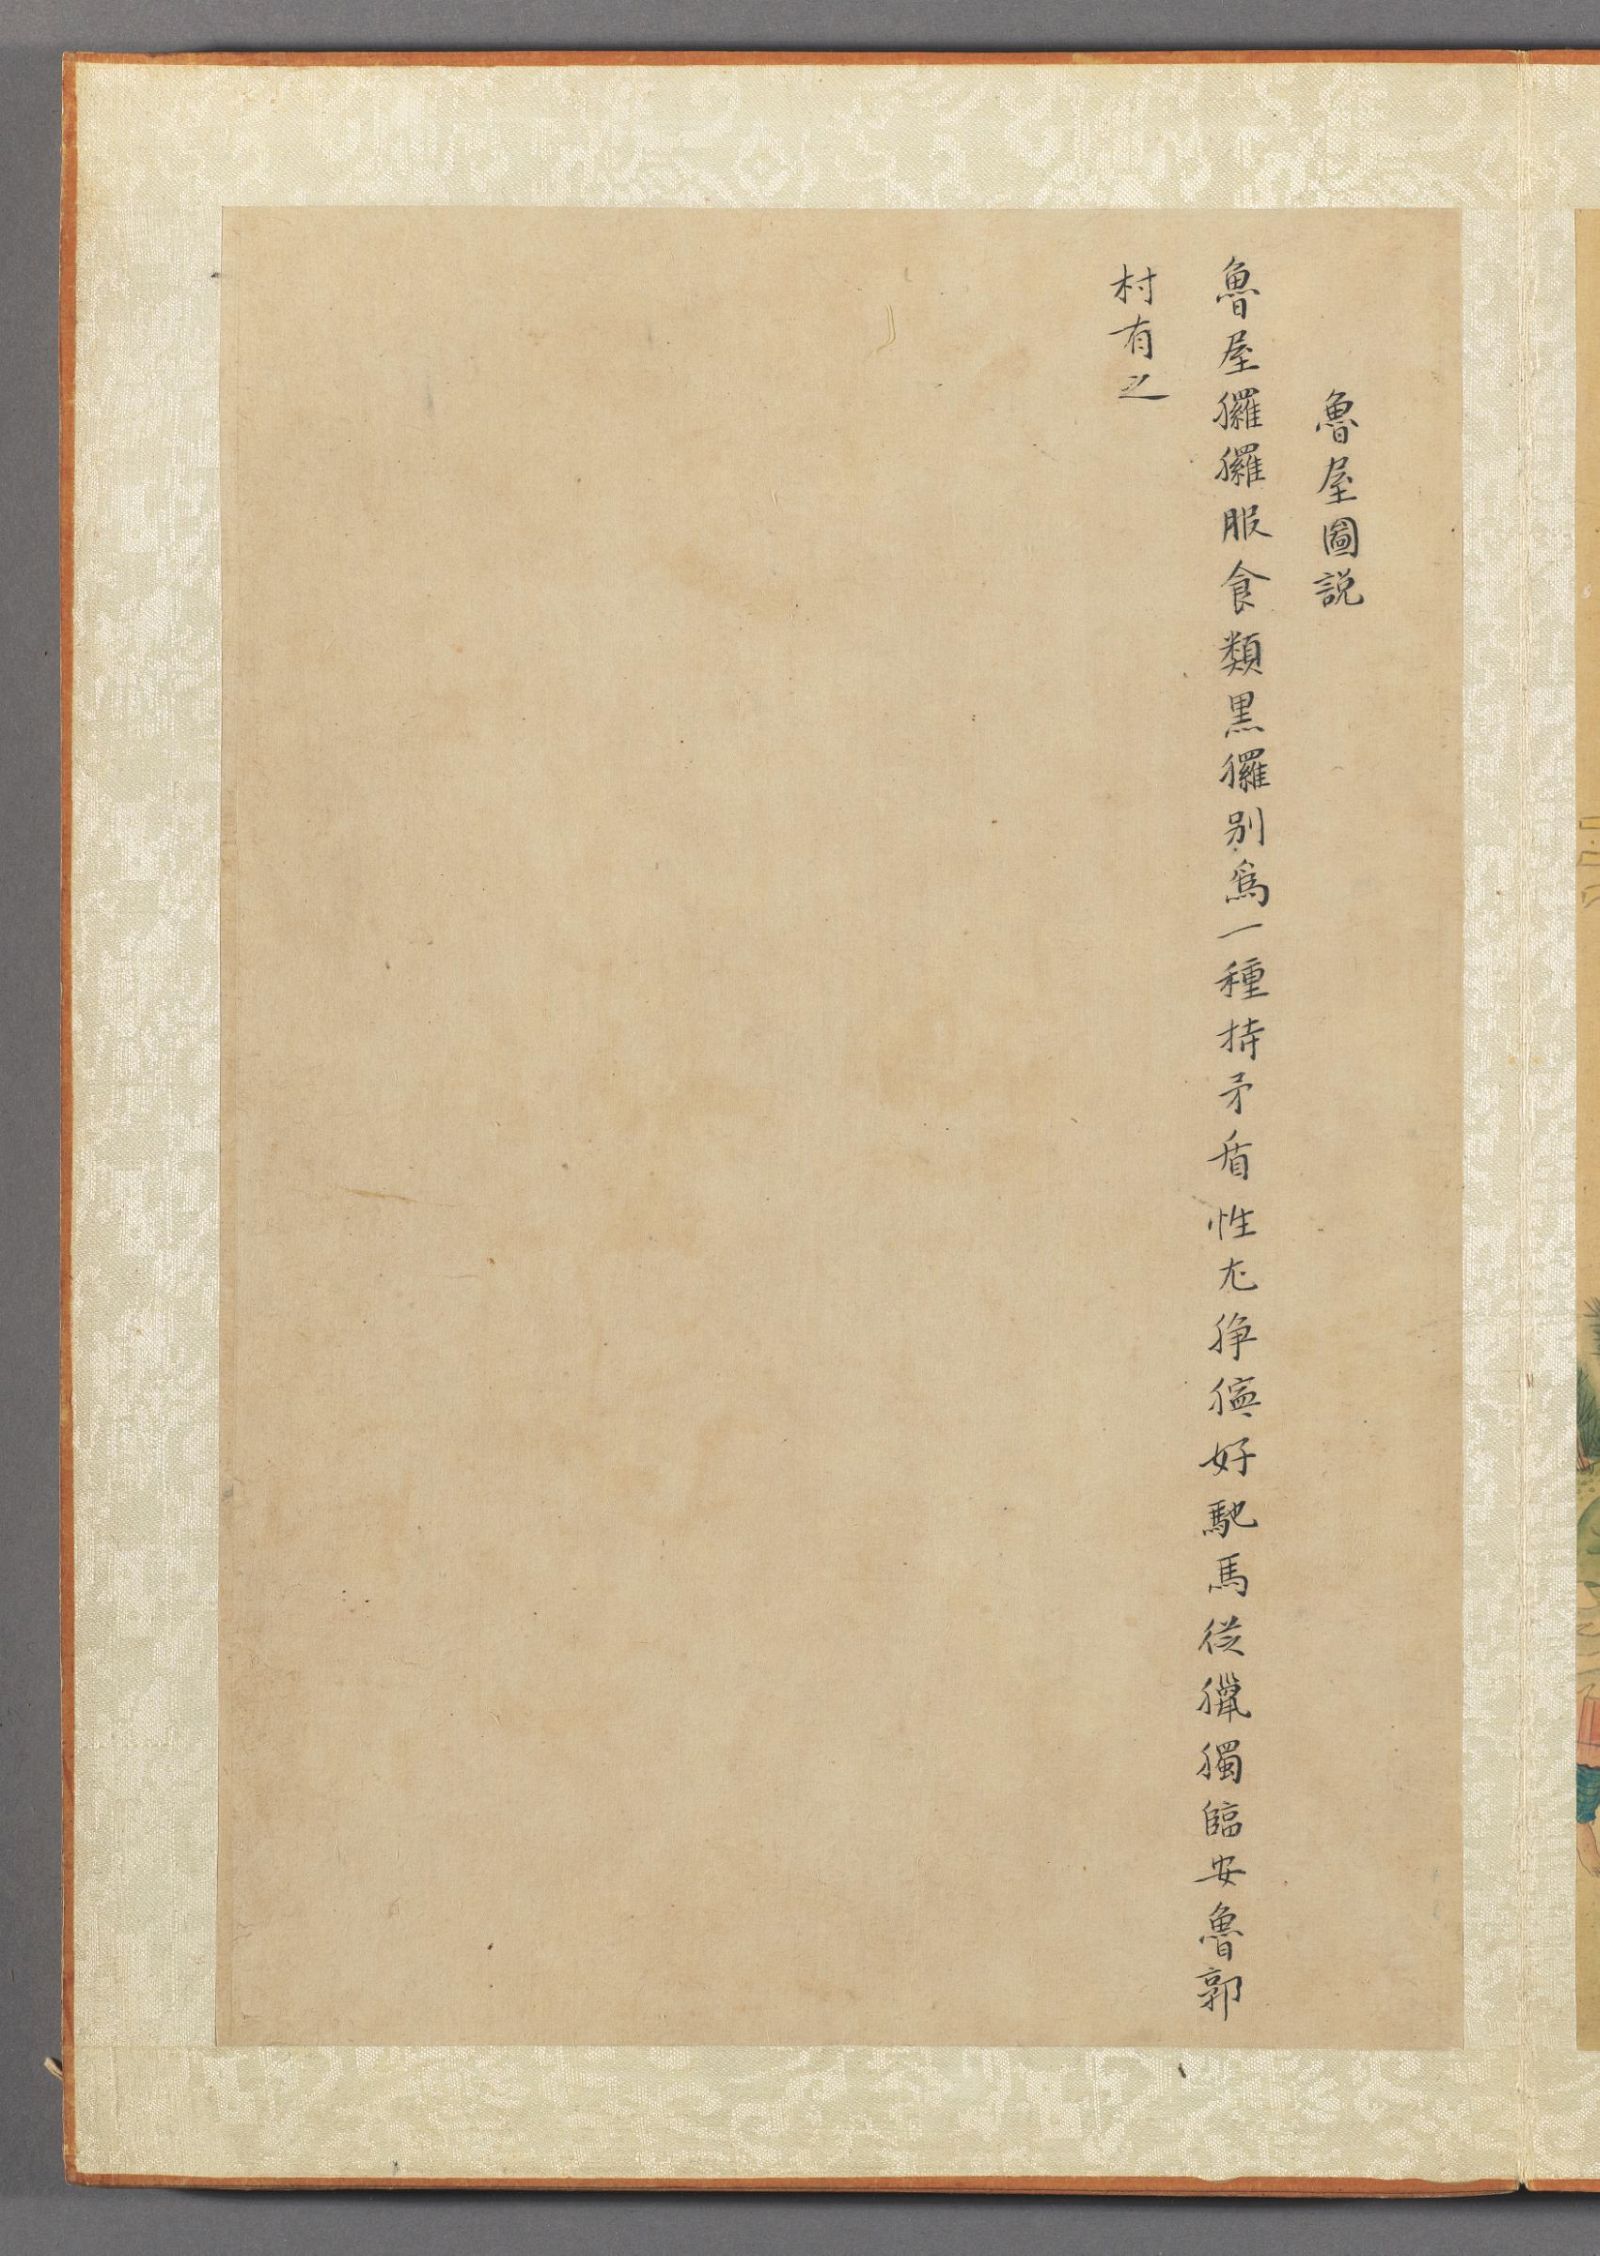 魯屋圖説
魯屋玀玀服食類黒玀别爲一種持矛盾性尤猙獰好馳馬從獵獨臨安魯郭
村有之